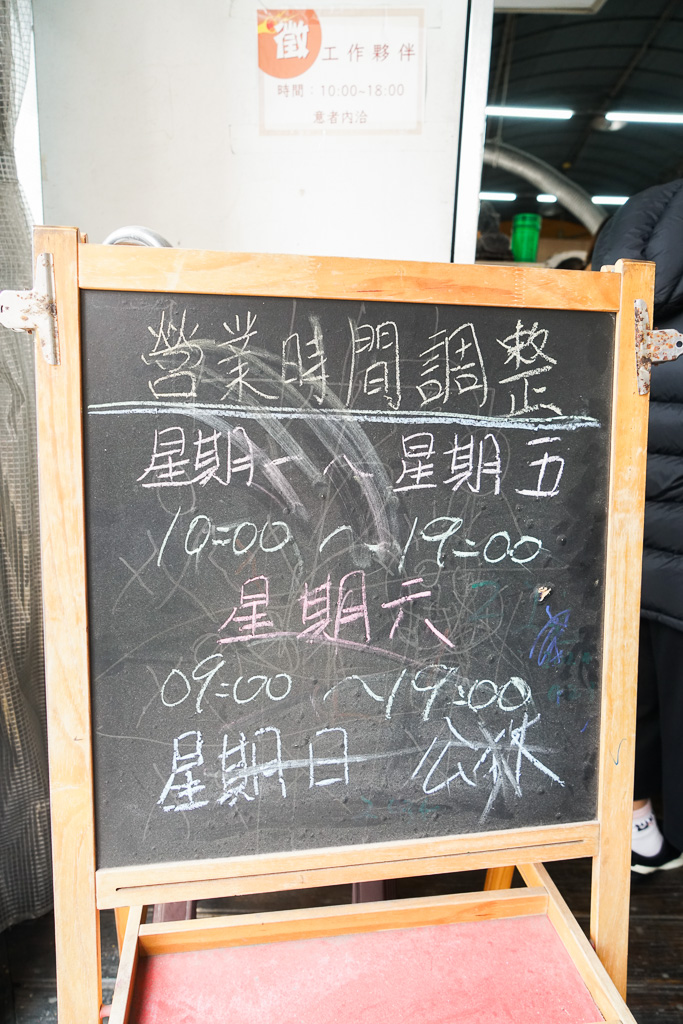 徵 工作夥伴
時間：10:00~18:00
意者內洽
營業時間調整
星期一～星期五
10:00～19:00
星期六
09:00～19:00
星期日 公休